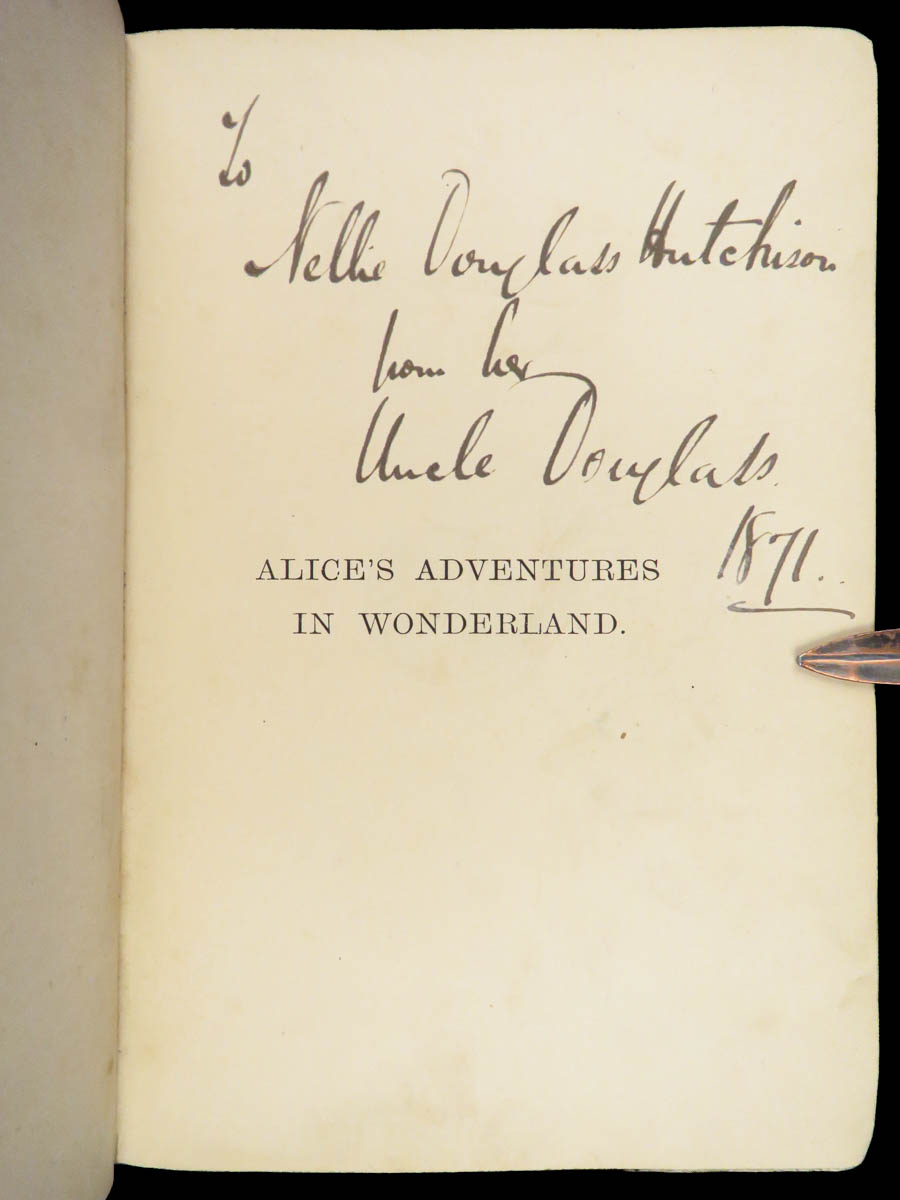 To
Nellie Douglass Hutchison
from her
Uncle Douglass.
1871.
ALICE'S ADVENTURES
IN WONDERLAND.